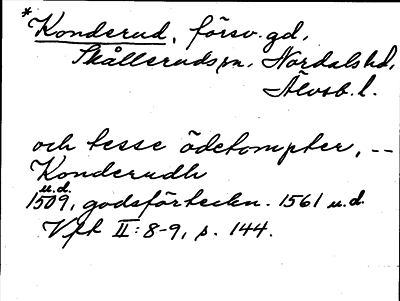 *Konderud, försv. gd,
Skålleruds sn, Nordals hd,
Älvsb. l.
och tesse ödetompter, --
Konderudh
u.d.
1509, godsförteckn. 1561 u.d.
Vfh II: 8-9, s. 144.